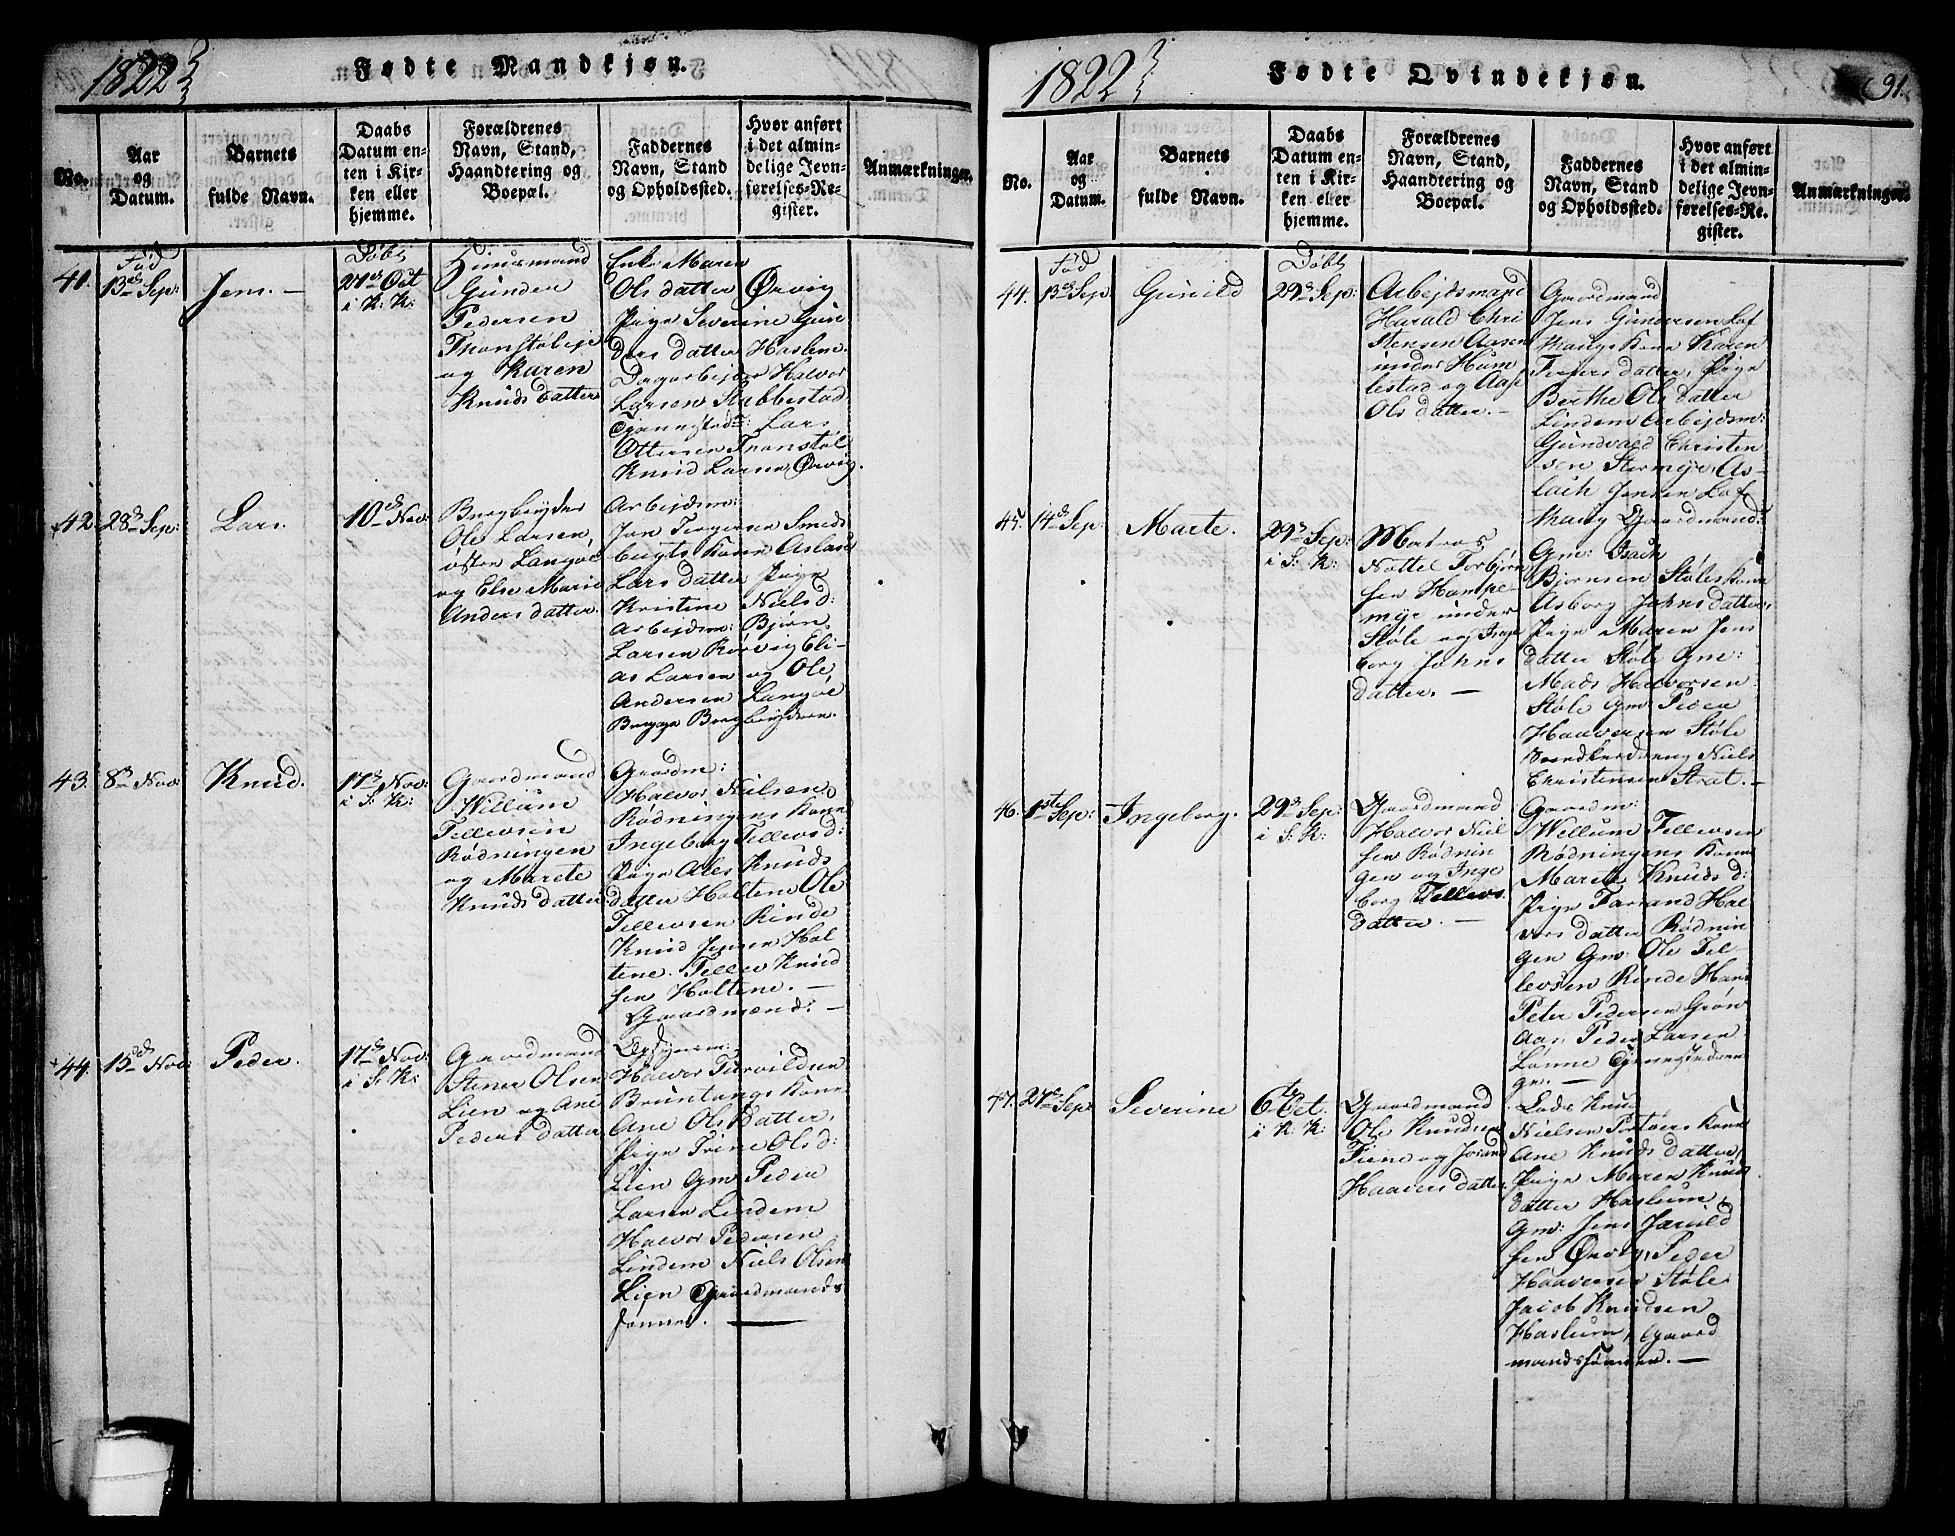 1822
Fødte Mandkjøn.
No.
Aar
og
Datum.
Barnets
fulde Navn.
Daabs
Datum en-
ten i Kir-
ken eller
hjemme.
Forældrenes
Navn, Stand,
Haandtering og
Boepæl.
Faddernes
Navn, Stand
og Opholdssted.
Hvor anført
i det almin-
delige Jevn-
førelses-Re-
gister.
Anmærkninger.
41.
Fød
13de Sep:
Jens. –
Døbt
27de Oct
i K: K:
Huusmand
Gunder
Pedersen
og Karen
Knuds datter
Enke Maren
Ols datter Ørvig
Pige Severine Gun
ders datter Haslem.
Dagarbejder Halvor
Larsen Stabbestad
Lars
Ottersen Tronstøl
Knud Larsen Ørvig.
42.
28de Sep:
Lars.
10de Nov:
Bergbryder
Ole Larsen,
østen Langøe
og Else Marie
Anders datter.
Arbejdsm:
Jon Torgersen Smeds
bugts Kone Aslaug
Lars datter Pige
Kristine Niels d:
Arbejdsm: Bjørn
Larsen Rørvig Eli-
as Larsen og Ole
Andersen Langøe
Begge Bergbrydere.
43.
8de Nov:
Knud.
17de Nov:
i S: K:
Gaardmand
Willum
Tellevsen
Rødningen
og Marete
Knuds datter
Gaardm:
Halvor Nielsen
Rødningens Kone
Ingeborg Tellevsd:
Pige Ales Knuds
datter Holtene Ole
Tellevsen Rinde
Knud Jensen Hol
tene. Tellev Knud
sen Holtene. –
Gaardmænd. –
44.
15de Nov:
Peder.
17de Nov:
i S: K:
Gaardmand
Stener Olsen
Lien og Ane
Peders datter
Opsynsm:
Halvor Torvildsen
Bruntangs Kone
Ane Ols datter,
Pige Trine Ols d:
Lien Gm Peder
Larsen Lindem
Halvor Pedersen
Lindem Niels Olsen
Lien Gaardmands
sønner.
1822
Fødte Qvindekjøn.
91.
No.
Aar
og
Datum.
Barnets
fulde Navn.
Daabs
Datum en-
ten i Kir-
ken eller
hjemme.
Forældrenes
Navn, Stand,
Haandtering og
Boepæl.
Faddernes
Navn, Stand
og Opholdssted.
Hvor anført
i det almin-
delige Jevn-
førelses-Re-
gister.
Anmærkninger.
44.
Fød
13de Sep.
Gunild
Døbt
29de Sep:
Arbejdsmand
Harald Chri
stensen Aasen
under Hum
lestad og Aase
Ols datter. –
Gaardmand
Jens Gundersen Lof
thaugs Kone Karen
Torgers datter, Pige
Berthe Ols datter
Lindem Arbejdsm:
Gundvald Christen
sen Stormyr, As-
lach Jensen Lof
thaug Gaardmænd.
45.
14de Sep:
Marte.
29de Sep:
i S: K:
Matros
Nottel Torbjørn
sen Hampe-
myr under
Støle og Inge
borg Johns
datter. –
Gm: Isach
Bjørnsen Støles Kone
Asborg Johns datter,
Pige Maren Jens
datter Støle Gm:
Mads Halvorsen
Støle Gm Peder
Haaversen Støle
Niels
Christensen Strat. –
46.
1ste Sep:
Ingeborg.
29de Sep:
i S: K:
Gaardmand
Halvor Niel
sen Rødnin
gen og Inge
borg Tellevs
datter. –
Gaardm:
Willum Tellevsen
Rødningens Kone
Marete Knuds d:
Pige Tarrand Hal
vors datter Rødnin
gen Gm: Ole Tel
levsen Rinde Hans
Peter Pedersen Grøn
Aas, Peder Larsen
Lønne
47.
27de Sep:
Severine
6te Oct.
i K: K:
Gaardmand
Ole Knudsen
Tiene og Jorand
Haavers datter
Lods Knud
Nielsen Portvers Kone
Ane Knuds datter,
Pige Maren Knuds
datter Haslum,
Gm: Jens Jarvild
sen Ørvig, Peder
Haaversen Støle
Jacob Knudsen
Haslum, Gaard
mandssønner. –